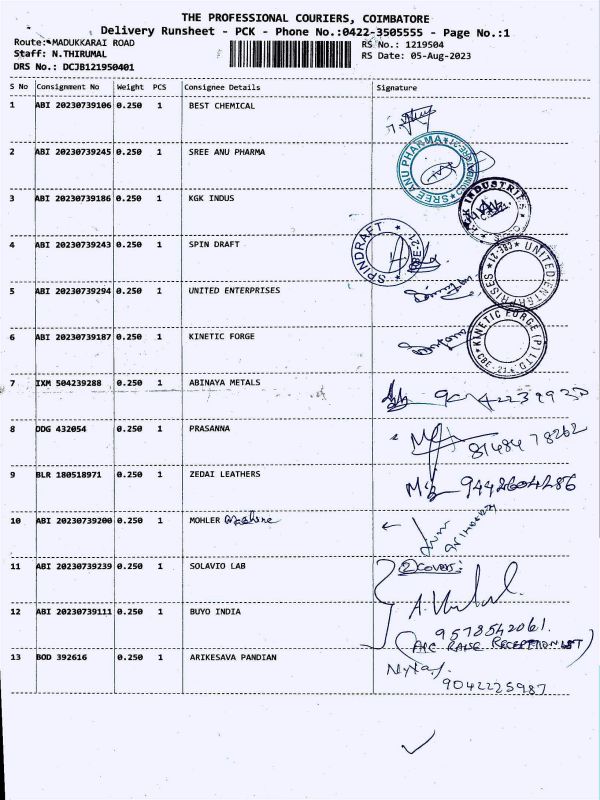 THE PROFESSIONAL COURIERS, COIMBATORE
Delivery Runsheet - PCK - Phone No.:0422-3505555 - Page No.:1
Route: MADUKKARAI ROAD RS No.: 1219504
Staff: N.THIRUMAL RS Date: 05-Aug-2023
DRS No.: DCJB121950401
S No Consignment No Weight PCS Consignee Details Signature
1 ABI 20230739106 0.250 1 BEST CHEMICAL
2 ABI 20230739245 0.250 1 SREE ANU PHARMA
SREE ANU PHARMA
3 ABI 20230739186 0.250 1 KGK INDUS
INDUSTRIES
4 ABI 20230739243 0.250 1 SPIN DRAFT
SPINDRAFT CBE-21
5 ABI 20230739294 0.250 1 UNITED ENTERPRISES
UNITED ENTERPRISES CBE-21
6 ABI 20230739187 0.250 1 KINETIC FORGE
KINETIC FORGE (P) LTD CBE-21
7 IXM 504239288 0.250 1 ABINAYA METALS
8 DDG 432054 0.250 1 PRASANNA 8148478262
9 BLR 180518971 0.250 1 ZEDAI LEATHERS 9442604286
10 ABI 20230739200 0.250 1 MOHLER
11 ABI 20230739239 0.250 1 SOLAVIO LAB ② COVERS:
12 ABI 20230739111 0.250 1 BUYO INDIA
9578542061.
13 BOD 392616 0.250 1 ARIKESAVA PANDIAN
9042225987